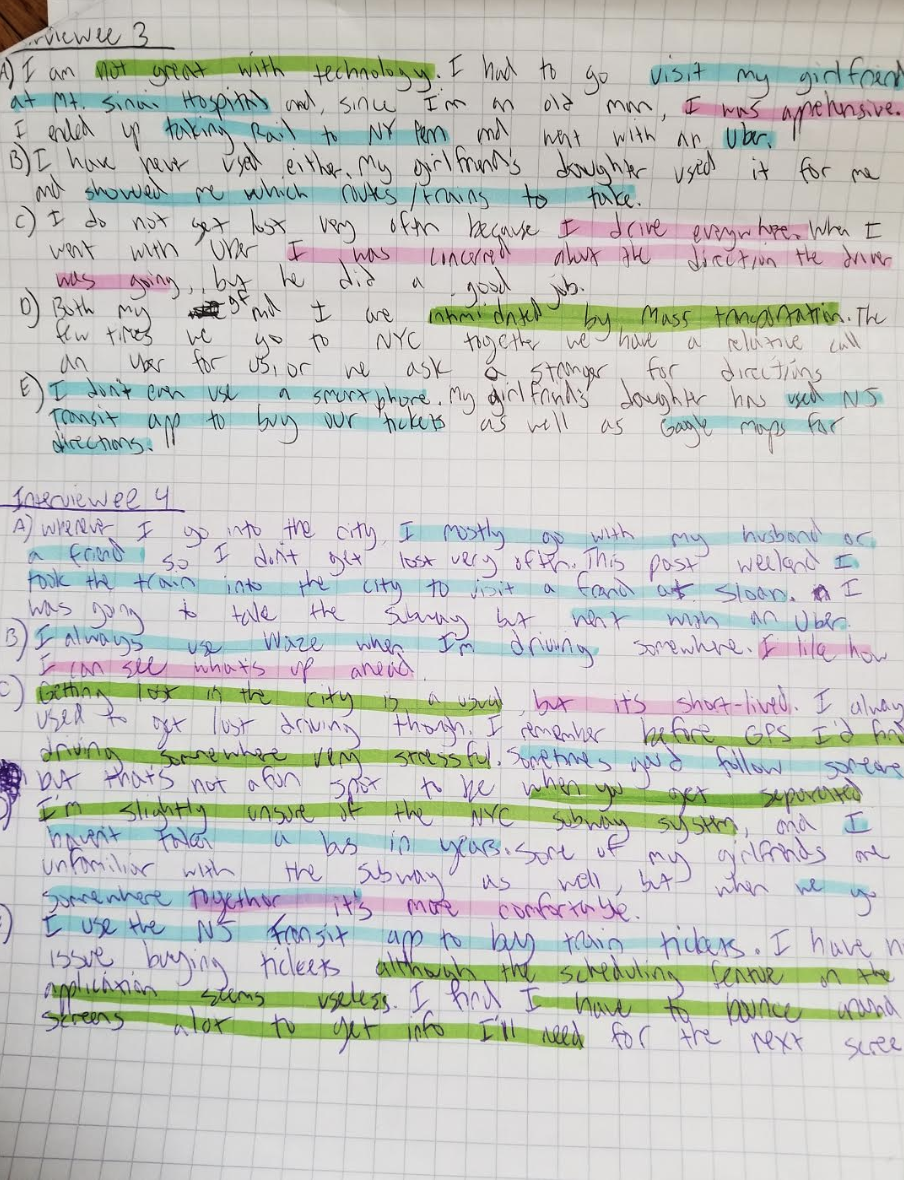 rviewee 3
A) I am not great with technology. I had to go visit my girlfriend
at Mt. Sinai Hospital and, since I'm an old man, I was aprehensive.
I ended up taking Rail to NY Penn and went with an Uber.
B) I have never used either. My girlfriend's daughter used it for me
and showed me which routes/trains to take.
C) I do not get lost very often because I drive everywhere. When I
went with Uber I was concered about the direction the driver
was going, but he did a good job.
D) Both my gf and I are intimidated by Mass transportation. The
few times we go to NYC together we have a relative call
an Uber for us, or we ask a stranger for directions
E) I don't even use a smartphone. My girlfriend's daughter has used NJ
Transit app to buy our tickets as well as Google maps for
directions.
Interviewee 4
A) wherever I go into the city I mostly go with my husband or
a friend so I don't get lost very often. This past weekend I
took the train into the city to visit a friend at Sloan. I
was going to take the subway but went with an Uber.
B) I always use Waze when I'm driving somewhere. I like how
I can see what's up ahead.
C) Getting lost in the city is a usual, but it's short-lived. I alway
used to get lost driving though. I remember before GPS I'd find
driving somewhere very stressful. Sometimes you'd follow someone
but that's not a fun spot to be when you get separated
I'm slightly unsure of the NYC subway system, and I
haven't taken a bus in years. Some of my girlfriends are
unfamiliar with the subway as well, but when we go
somewhere together it's more comfortable.
I use the NJ Transit app to buy train tickets. I have n
issue buying tickets although the scheduling feature in the
application seems useless. I find I have to bounce around
screens alot to get info I'll need for the next scree